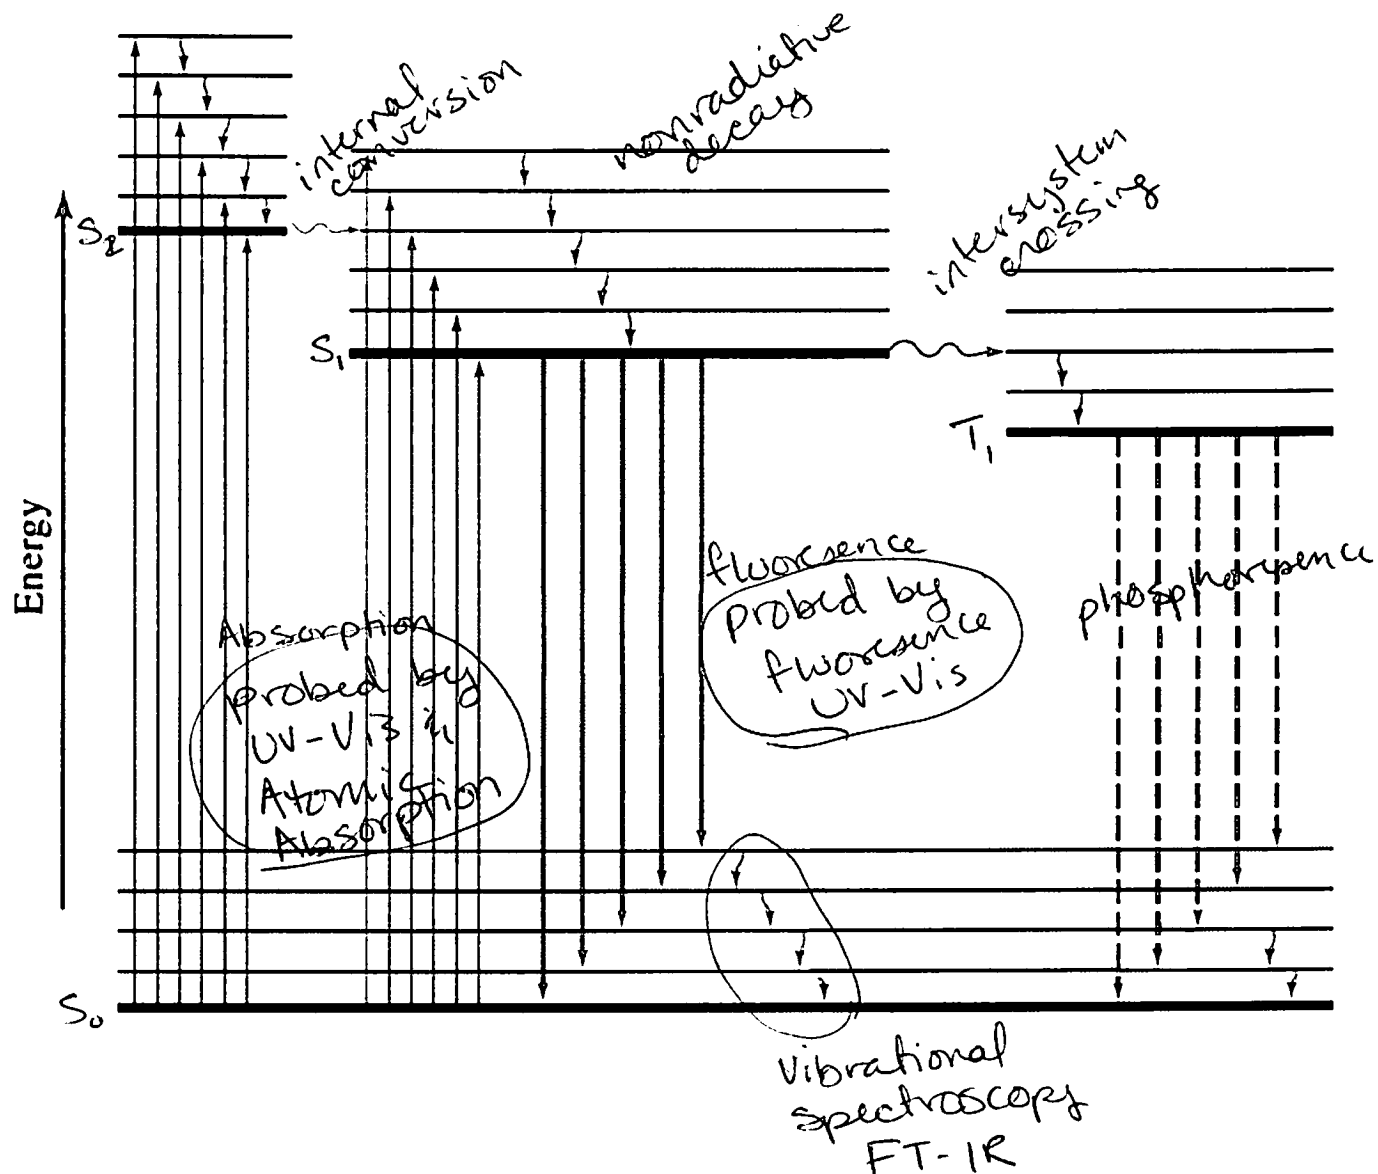 internal
conversion
nonradiative
decay
intersystem
crossing
S2
S1
T1
Energy
Absorption
probed by
UV-Vis
Atomic
Absorption
fluoresence
probed by
fluoresence
UV-Vis
phosphoresence
S0
Vibrational
spectroscopy
FT-IR